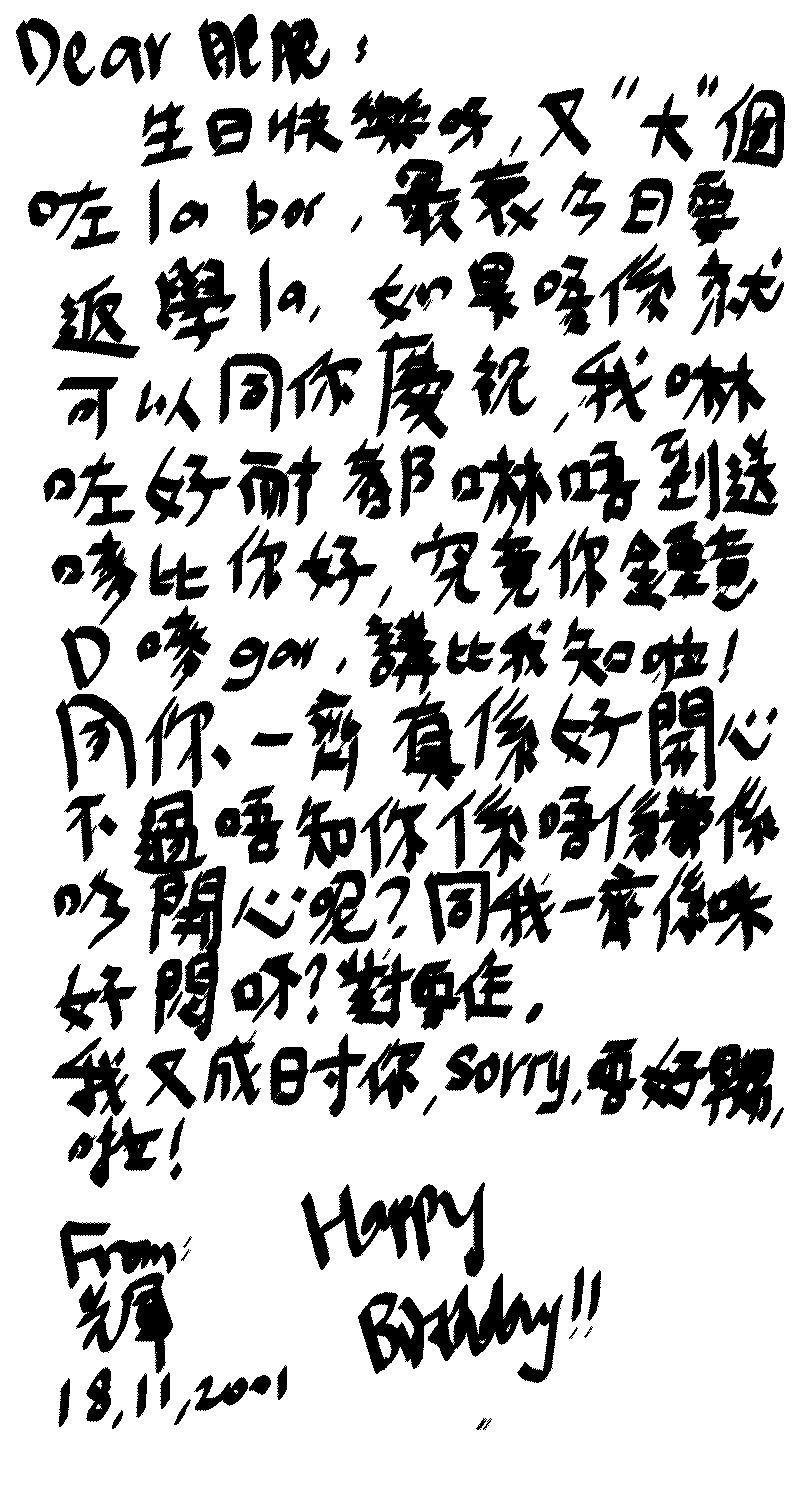 Dear 肥肥：
生日快樂呀,又"大"個
咗 la bor,最衰今日要
返學 la, 如果唔係就
可以同你慶祝,我啉
咗好耐都啉唔到送
嘜比你好,究竟你鍾意
D 嘜 gar,講比我知啦!
同你一齊真係好開心
不過唔知你係唔係都係
咁開心呢?同我一齊係咪
好悶呀?對唔住.
我又成日寸你,sorry,唔好嬲,
啦!
From:
光軍
Happy
Birthday!!
18,11,2001